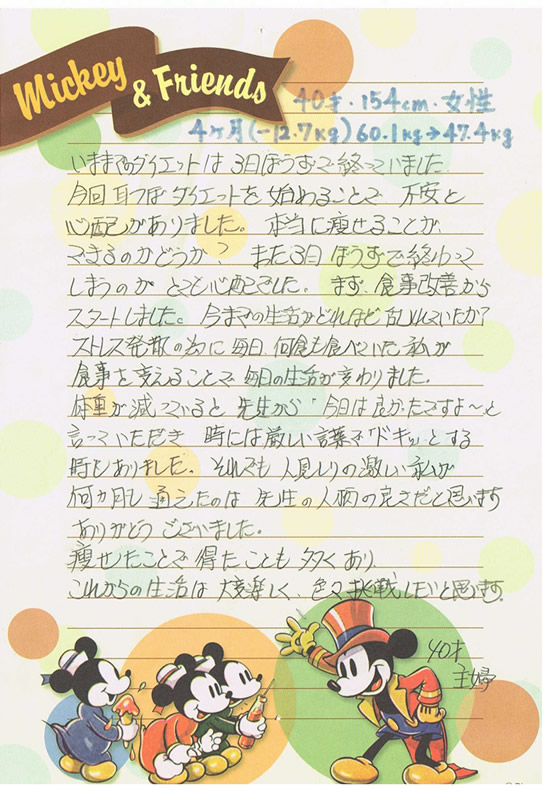 Mickey & Friends
40才・154cm・女性
4ヶ月(-12.7kg) 60.1kg→47.4kg
いままでのダイエットは3日ぼうずで終っていました
今回耳つぼダイエットを始めることで 不安と
心配がありました。本当に痩せることが
できるのかどうか? また3日ぼうずで終わって
しまうのか とても心配でした。まず、食事改善から
スタートしました。今までの生活がどれほど乱れていたか?
ストレス発散の為に毎日、何食も食べていた私が
食事を変えることで毎日の生活が変わりました。
体重が減っていると先生から「今日は良かったですよ〜」と
言っていただき 時には厳しい言葉で「ドキッ」とする
時もありました。それでも人見しりの激しい私が
何ヵ月も通えたのは 先生の人柄の良さだと思います
ありがとうございました。
痩せたことで得たことも多くあり
これからの生活は大変楽しく、色々挑戦したいと思います。
40才
主婦